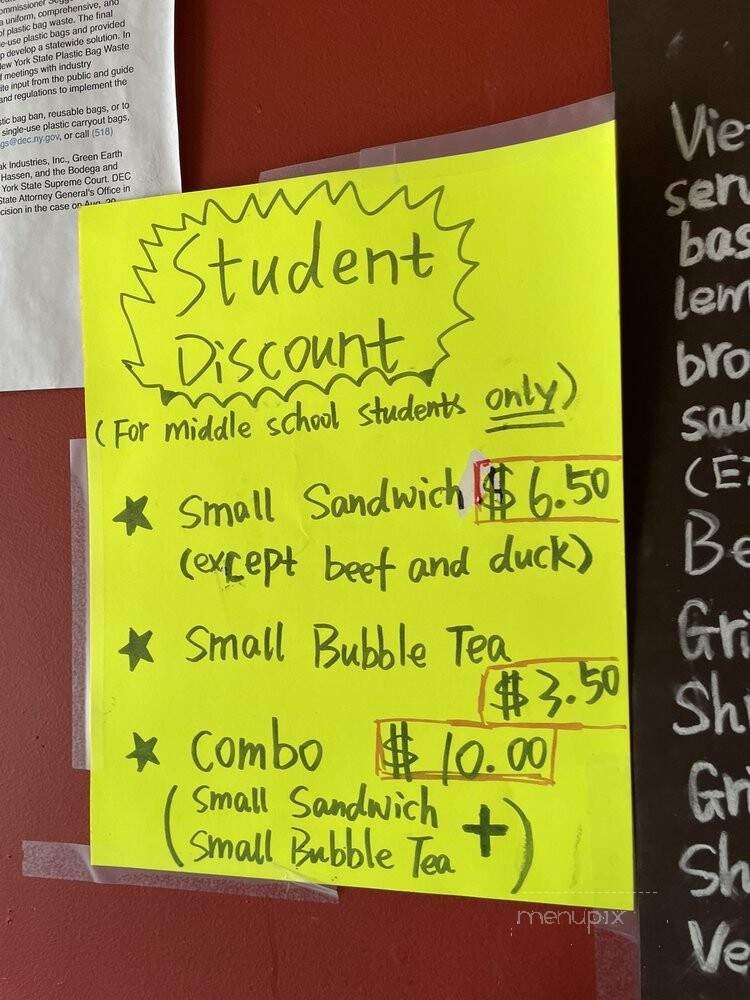 a uniform, comprehensive, and
of plastic bag waste. The final
-use plastic bags and provided
develop a statewide solution. In
New York State Plastic Bag Waste
meetings with industry
input from the public and guide
and regulations to implement the
bag ban, reusable bags, or to
single-use plastic carryout bags,
gs@dec.ny.gov, or call (518)
Industries, Inc., Green Earth
Hassen, and the Bodega and
York State Supreme Court. DEC
State Attorney General's Office in
in the case on Aug. 20
Student
Discount
(For middle school students only)
★ Small Sandwich $ 6.50
(except beef and duck)
★ Small Bubble Tea
$ 3.50
★ Combo $ 10.00
(Small Sandwich +
Small Bubble Tea)
Vie
ser
bas
lem
bro
sau
Be
Gri
Sh
Gri
Sh
Ve
menupix